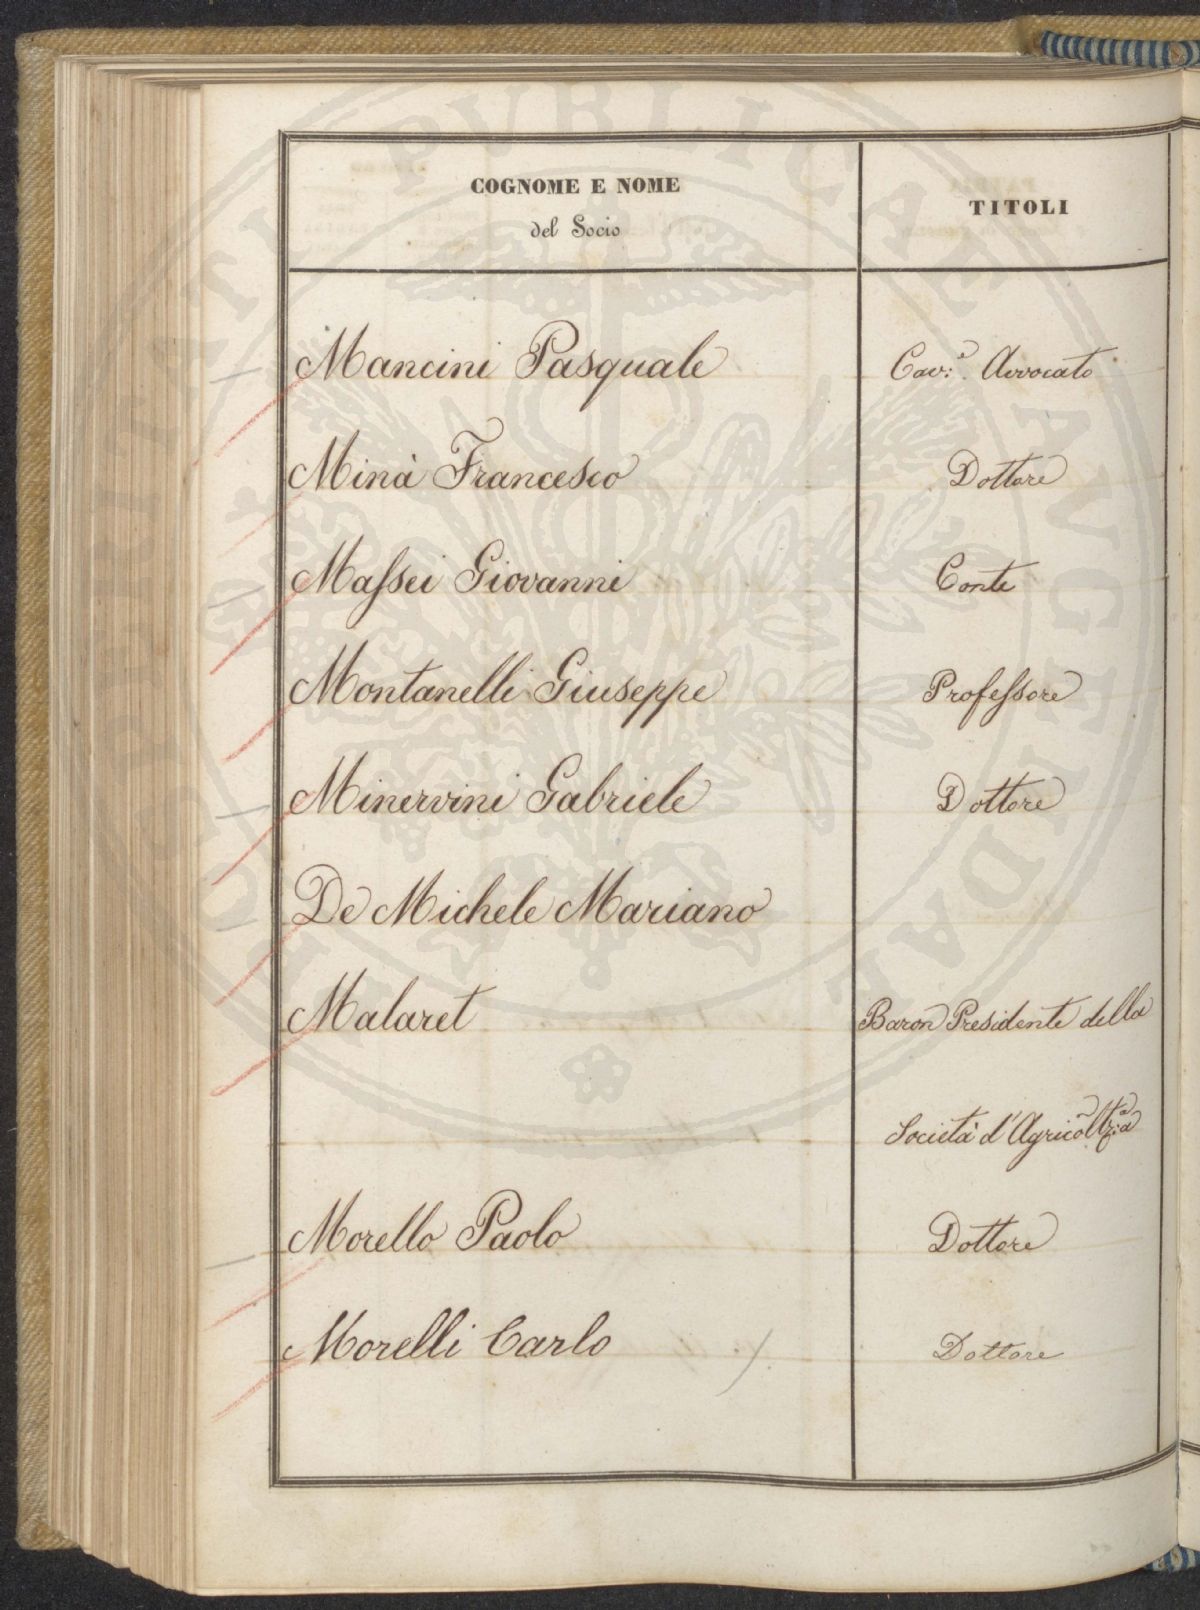 COGNOME E NOME
del Socio
TITOLI
Mancini Pasquale Cav:e Avvocato
Minà Francesco Dottore
Maſsei Giovanni Conte
Montanelli Giuseppe Profeſsore
Minervini Gabriele Dottore
De Michele Mariano
Malaret Baron Presidente della
Società d'Agricoltr:a
Morello Paolo Dottore
Morelli Carlo Dottore